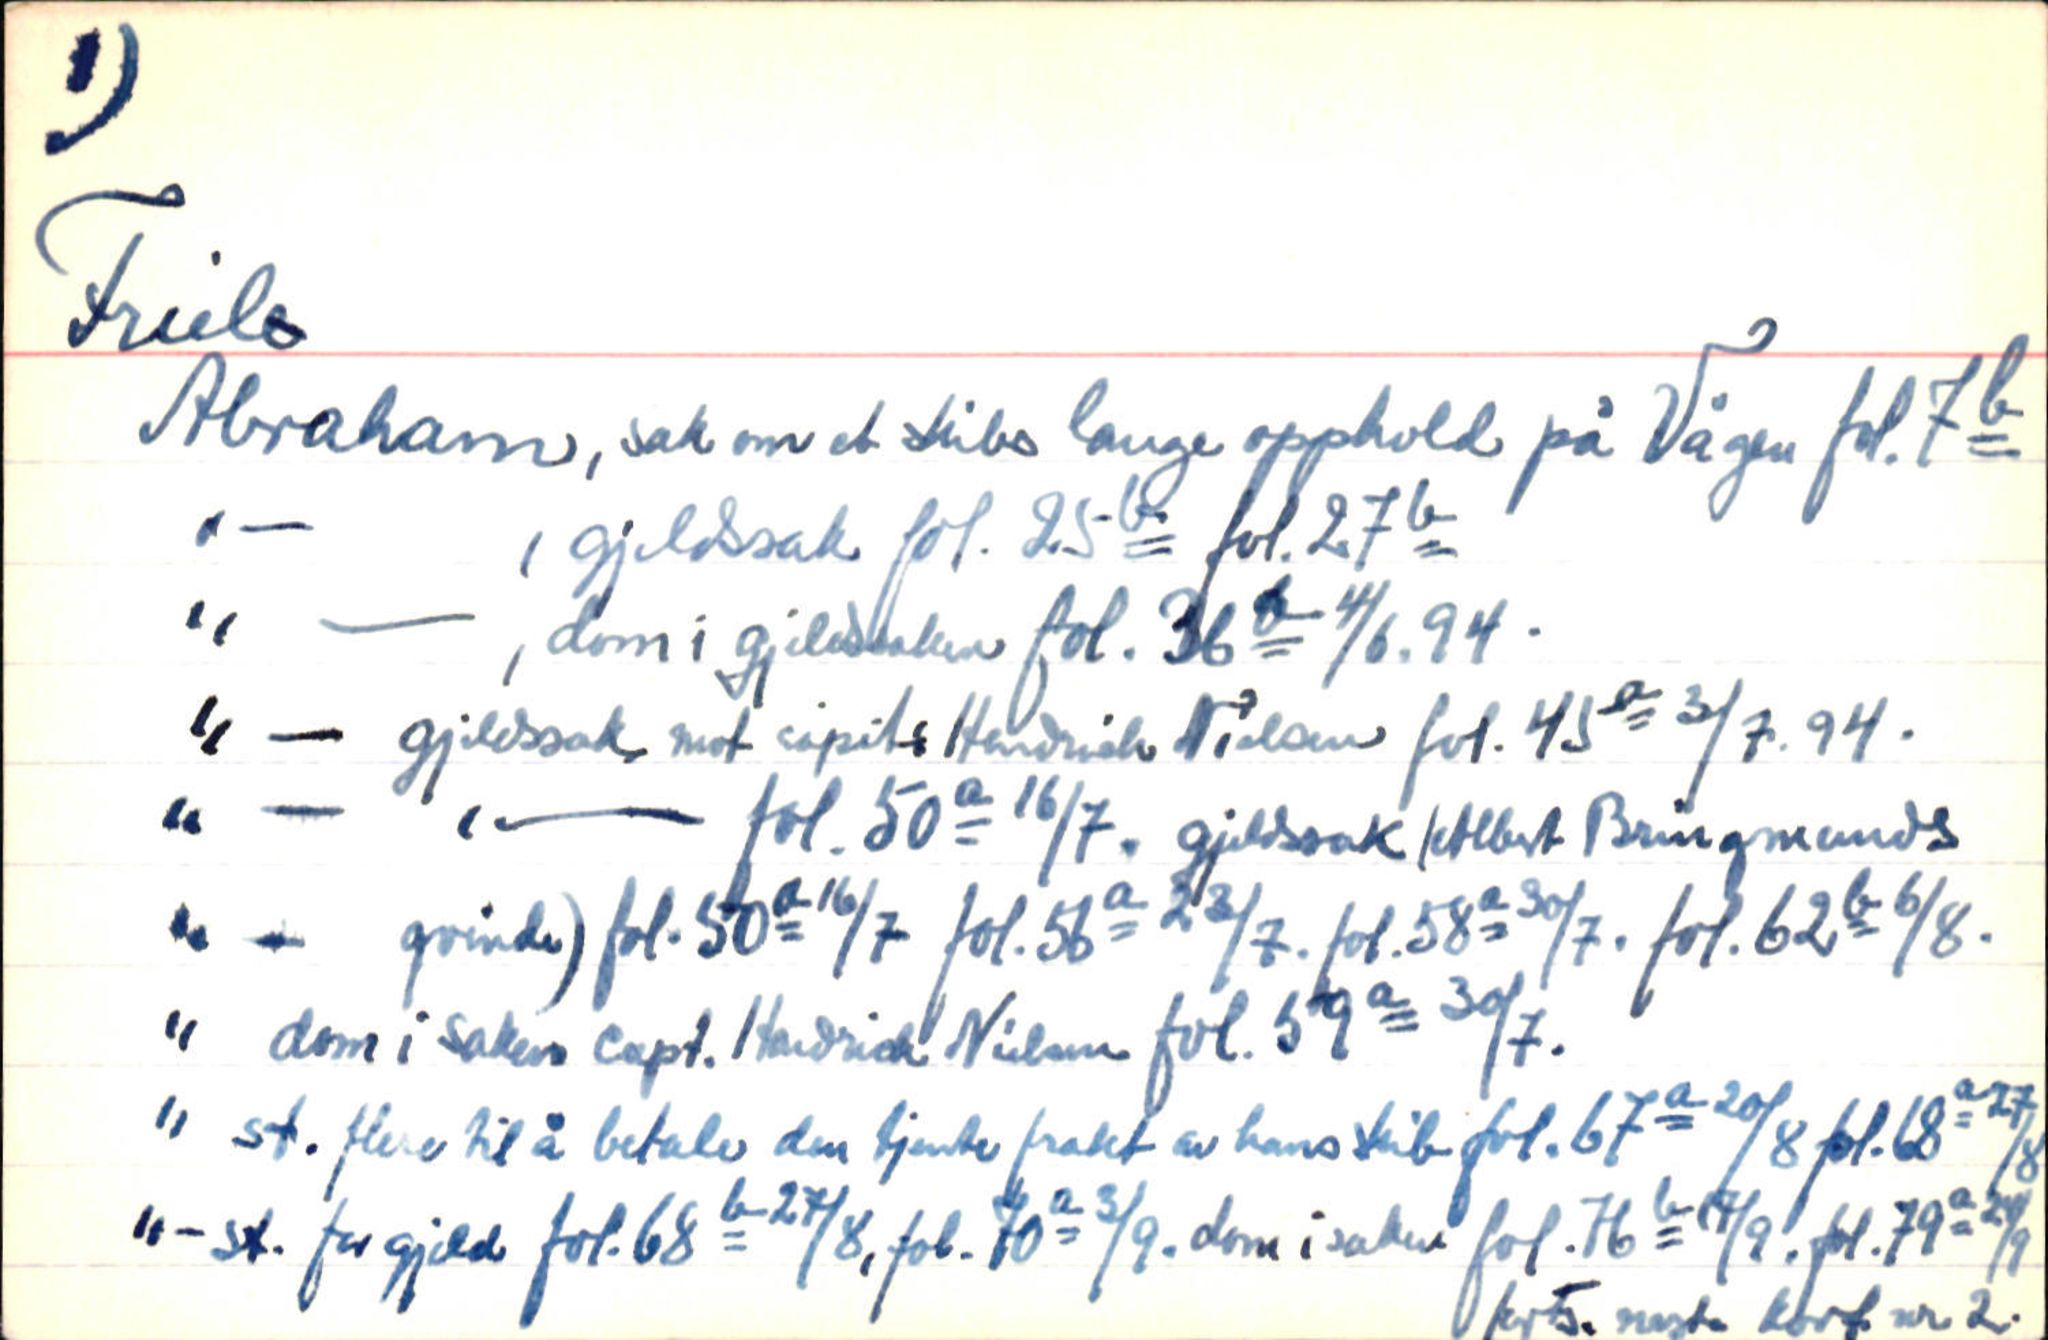 1)
Friele
Abraham, sak om et skibs lange opphold på Vågen fol. 7 b
" — , gjeldssak fol. 25 b fol. 27 b
" — , dom i gjeldssaken fol. 36 b 4/6. 94.
" — gjeldssak mot capit: Hendrich Nielsen fol. 45 a 3/7. 94.
" — " — fol. 50 a 16/7. gjeldssak (Albert Bringmands
" — qvinde) fol. 50 a 16/7 fol. 56 a 23/7. fol. 58 a 30/7. fol. 62 b 6/8.
" dom i saken capt. Hendrich Nielsen fol. 59 a 30/7.
" st. flere til å betale den tjente frakt av hans skib fol. 67 a 20/8 fol. 68 a 27/8
" - st. for gjeld fol. 68 b 27/8, fol. 70 a 3/9. dom i saken fol. 76 b 17/9. fol. 79 a 24/9
forts. neste kort nr 2.